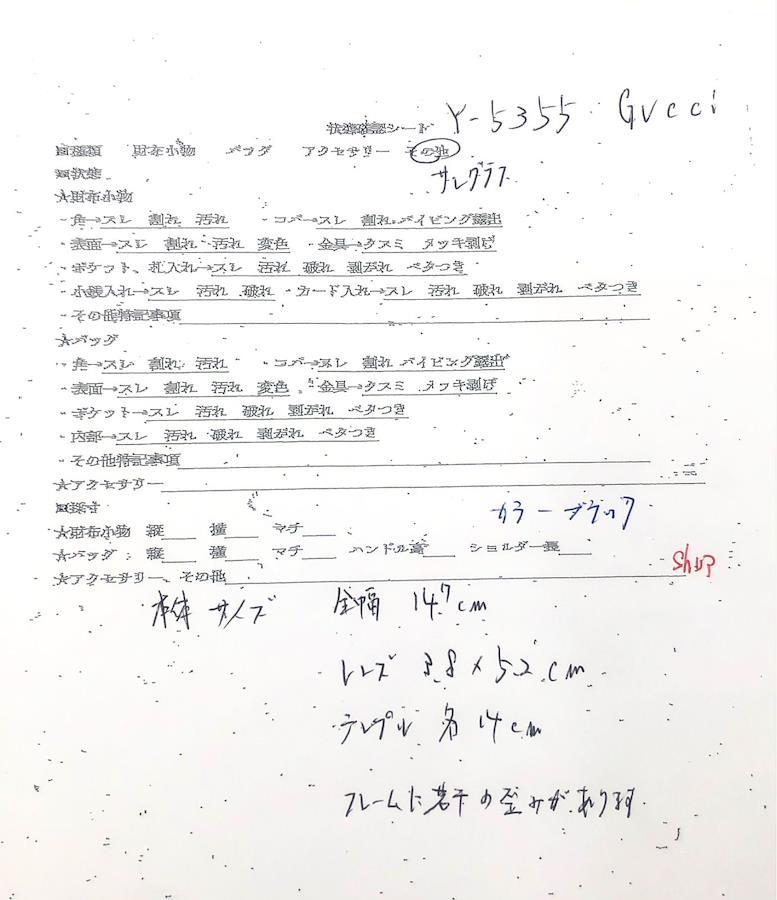 状態確認シート Y-5355 Gucci
■種類 財布小物 バッグ アクセサリー その他
■状態 サングラス
★財布小物
・角→スレ 割れ 汚れ ・コバ→スレ 割れ パイピング露出
・表面→スレ 割れ 汚れ 変色 ・金具→クスミ メッキ剥げ
・ポケット、札入れ→スレ 汚れ 破れ 剥がれ ベタつき
・小銭入れ→スレ 汚れ 破れ ・カード入れ→スレ 汚れ 破れ 剥がれ ベタつき
・その他特記事項
★バッグ
・角→スレ 割れ 汚れ ・コバ→スレ 割れ パイピング露出
・表面→スレ 割れ 汚れ 変色 ・金具→クスミ メッキ剥げ
・ポケット→スレ 汚れ 破れ 剥がれ ベタつき
・内部→スレ 汚れ 破れ 剥がれ ベタつき
・その他特記事項
★アクセサリー
■採寸 カラー ブラック
★財布小物 縦 横 マチ
★バッグ: 縦 横 マチ ハンドル高 ショルダー長
★アクセサリー、その他
本体サイズ 全幅 14.7cm
レンズ 3.8×5.2cm
テンプル 各14cm
フレームに若干の歪みがあります